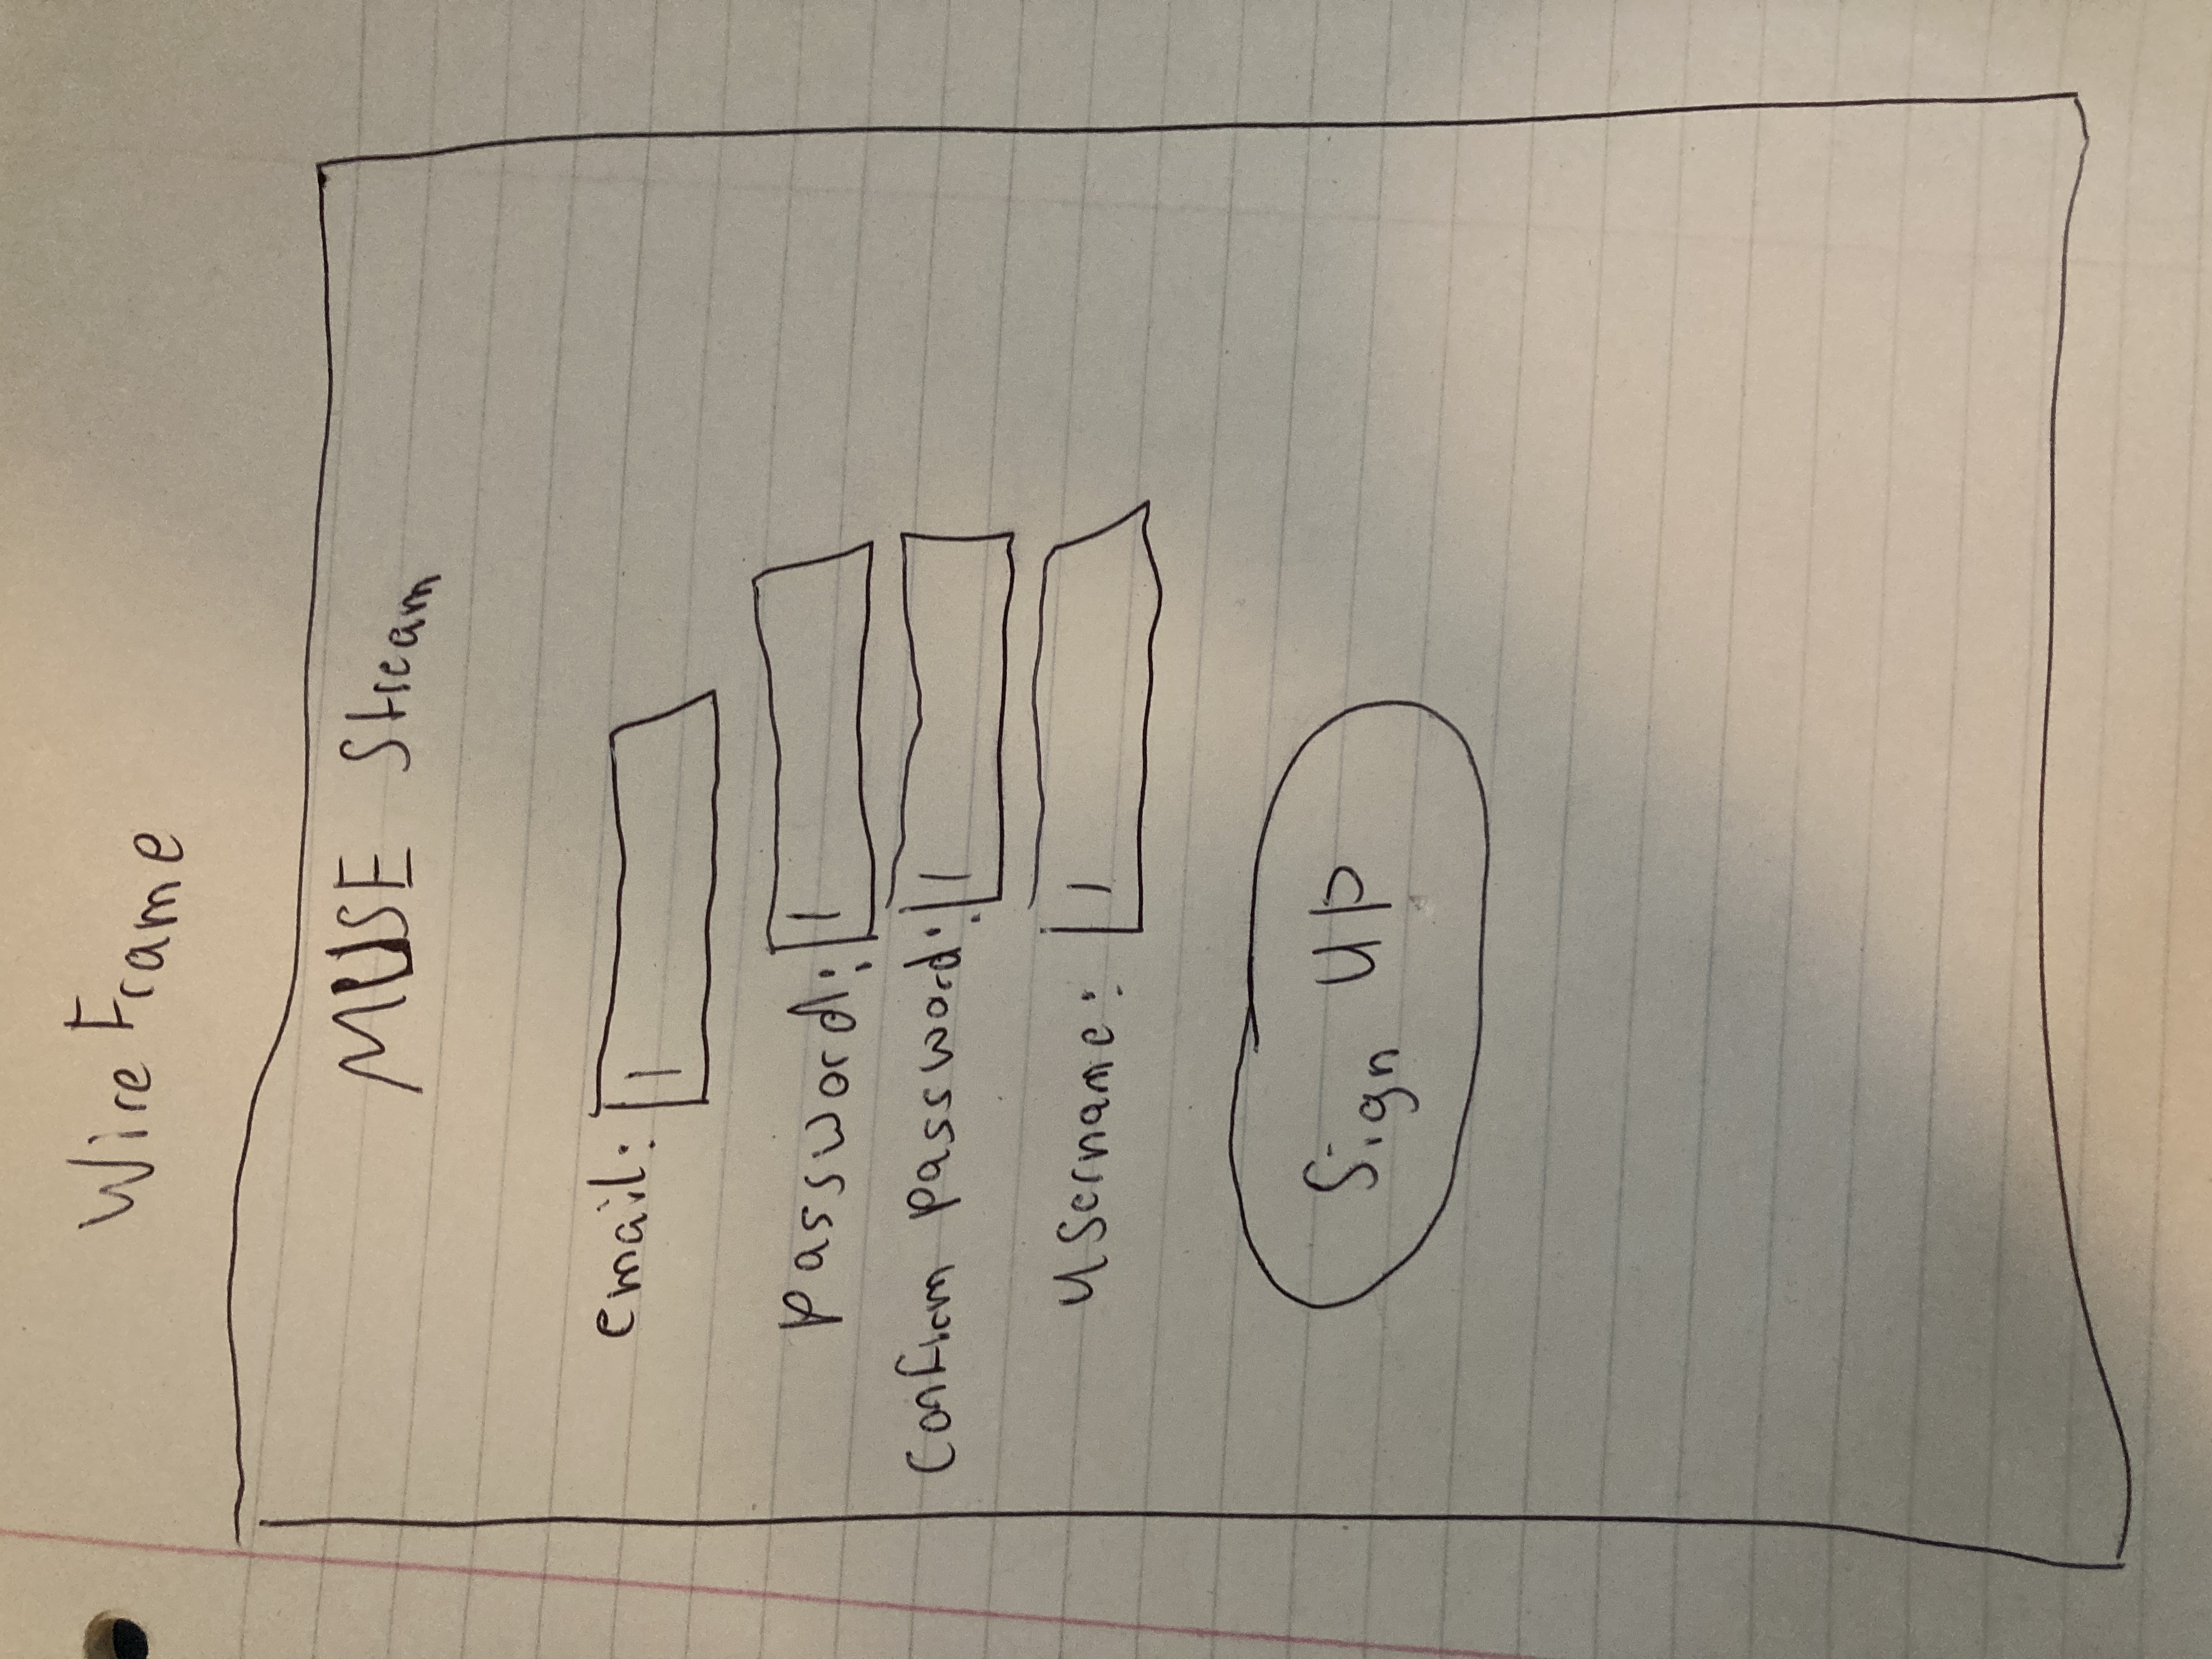 Wire Frame
MUSE Stream
email:
password:
Confirm password:
username:
Sign UP